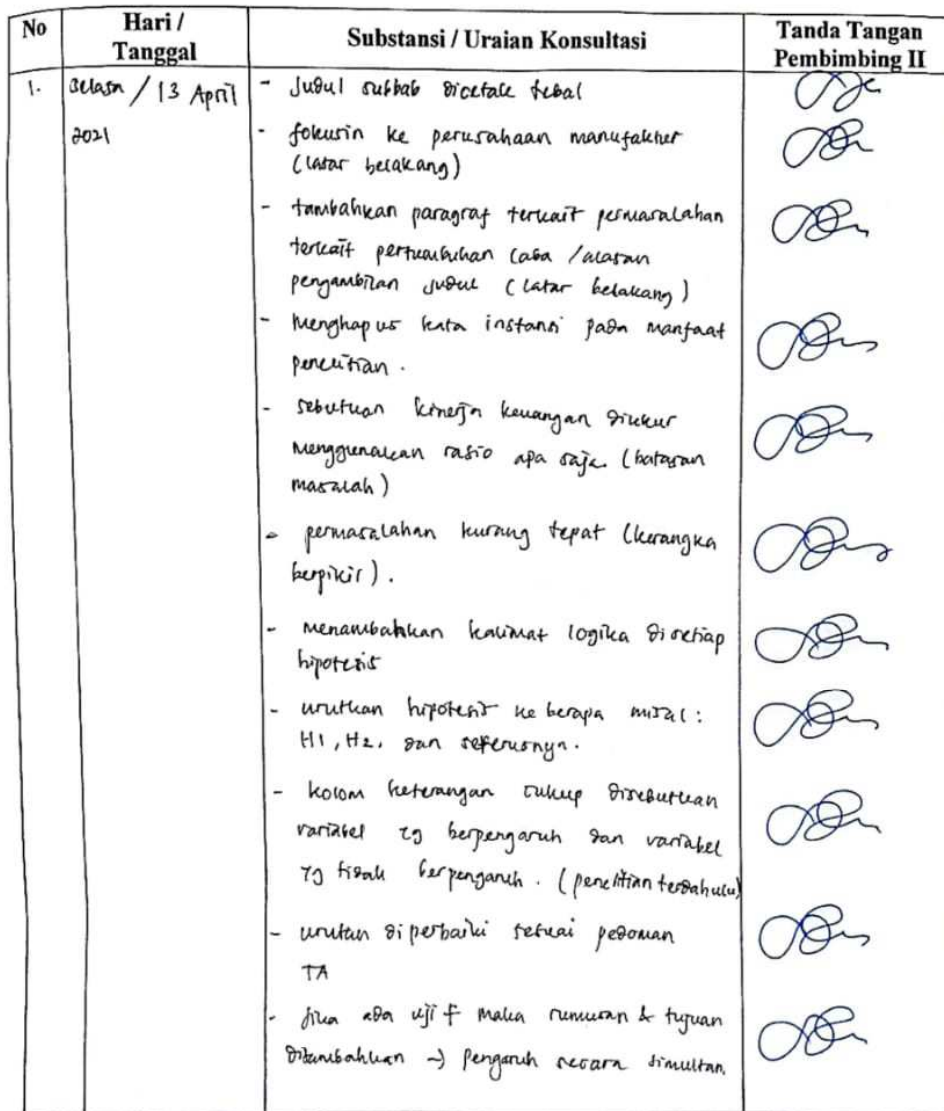 No
Hari /
Tanggal
Substansi / Uraian Konsultasi
Tanda Tangan
Pembimbing II
1.
Selasa / 13 April
2021
- Judul subbab dicetak tebal
- fokusin ke perusahaan manufaktur
(latar belakang)
- tambahkan paragraf terkait permasalahan
terkait pertumbuhan laba /alasan
pengambilan judul (latar belakang)
- Menghapus kata instansi pada manfaat
penelitian.
- sebutuan kinerja keuangan diukur
menggunakan rasio apa saja. (batasan
masalah)
- permasalahan kurang tepat (kerangka
berpikir).
- menambahkan kalimat logika disetiap
hipotesis
- urutkan hipotesis ke berapa misal:
H1, H2, dan seterusnya.
- kolom keterangan cukup disebutkan
variabel yg berpengaruh dan variabel
yg tidak berpengaruh. (penelitian terdahulu)
- urutan diperbaiki sesuai pedoman
TA
- jika ada uji f maka rumusan & tujuan
ditambahkan -> pengaruh secara simultan.